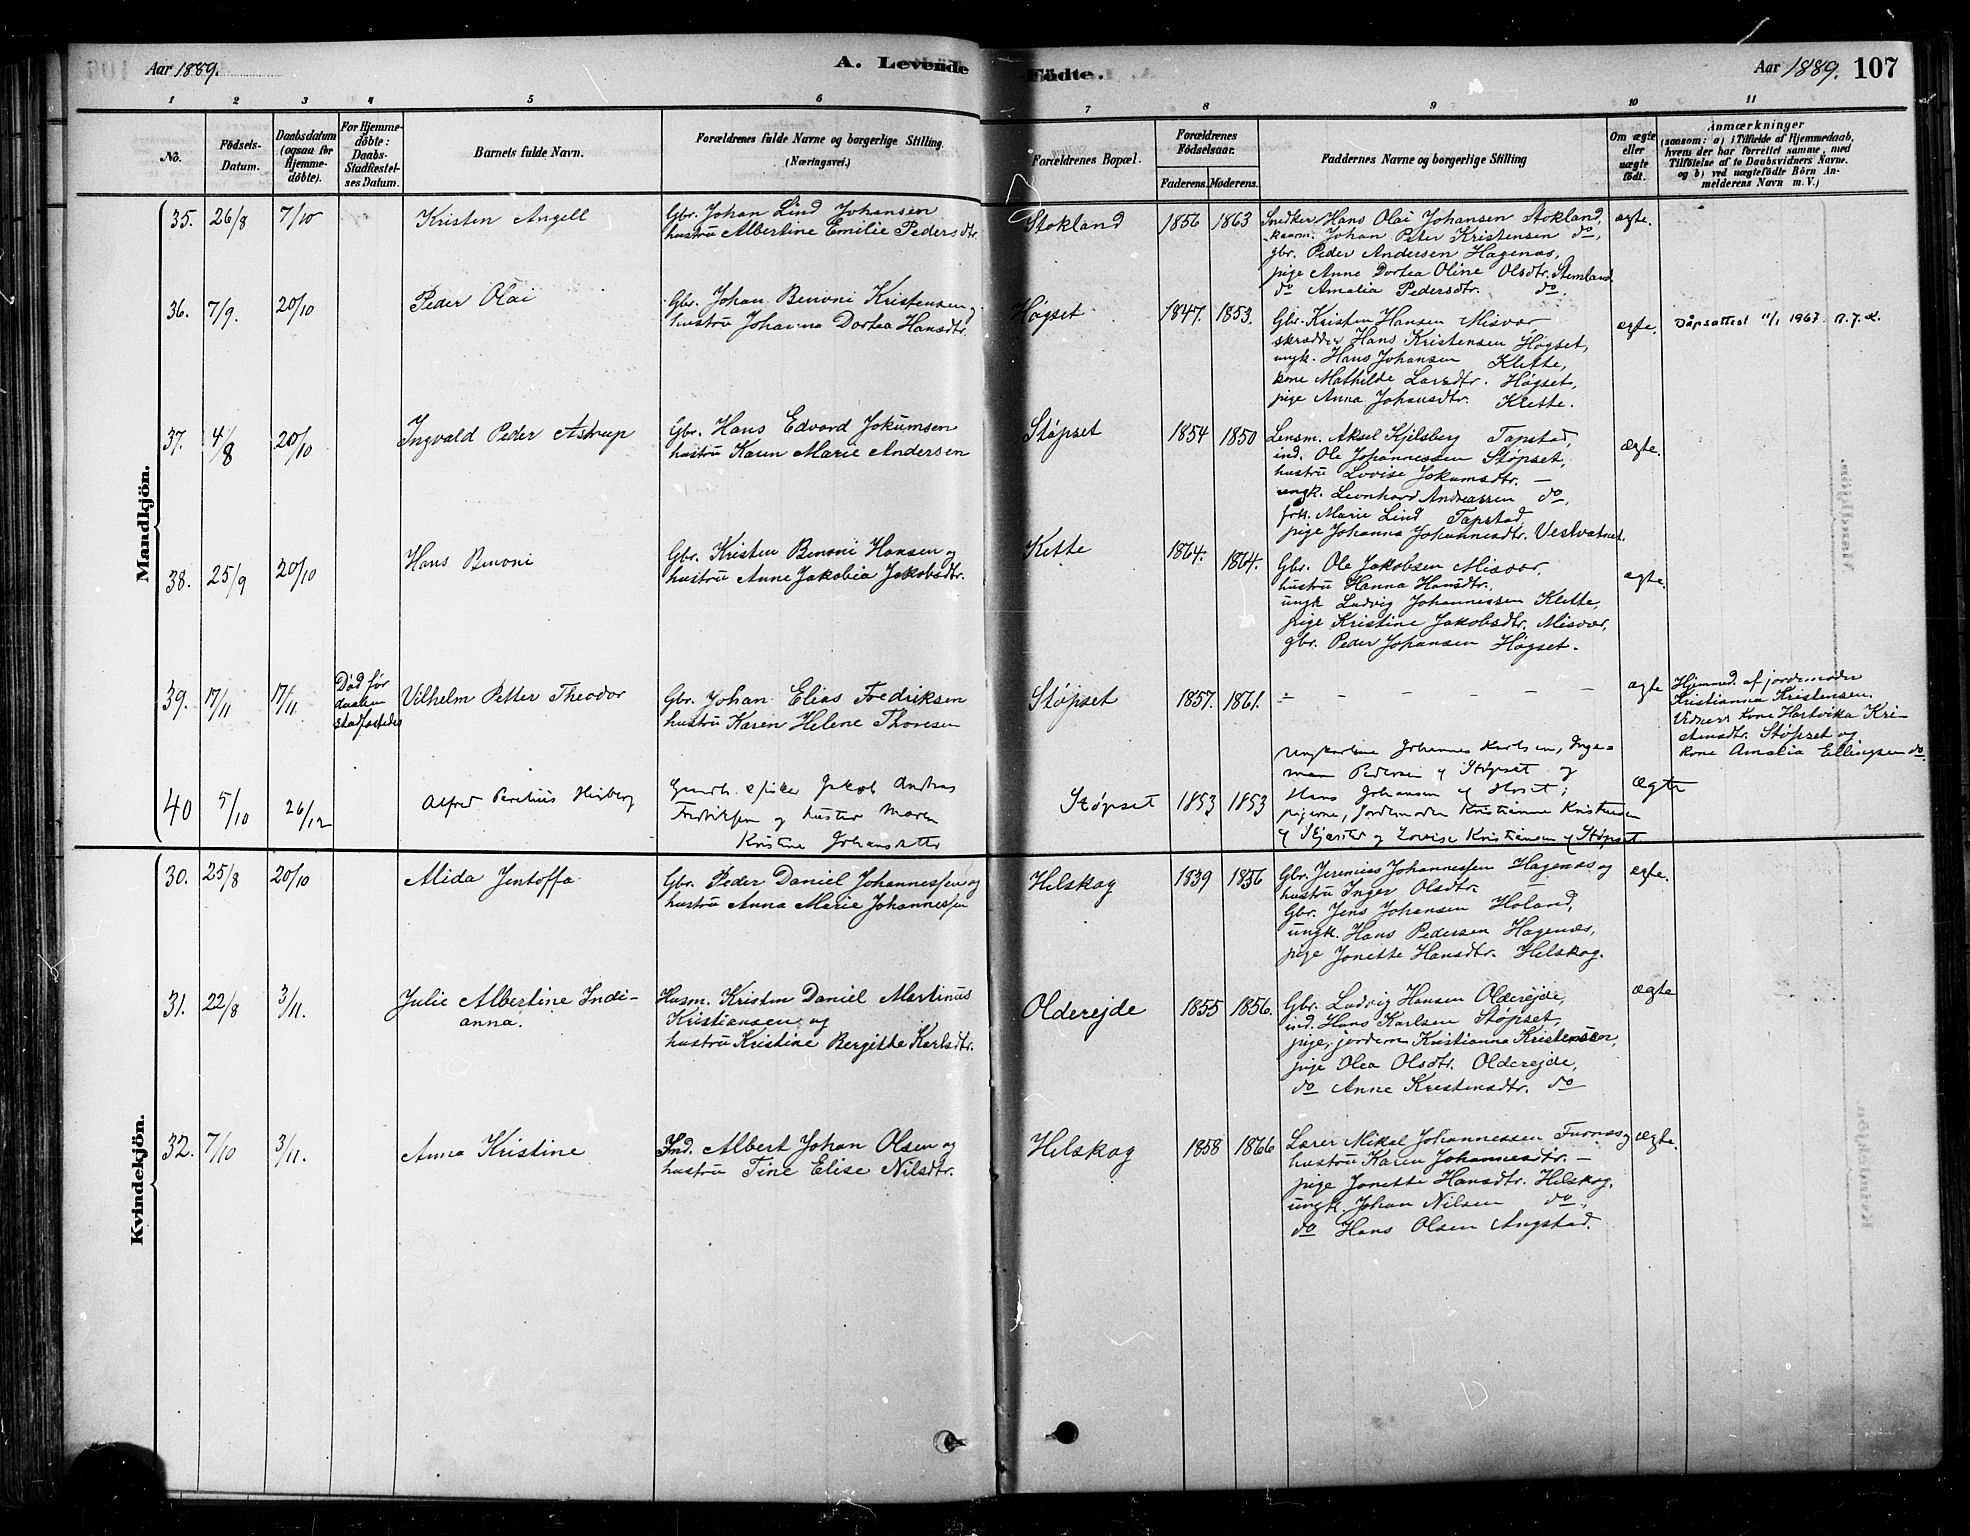 Aar 1889.
A. Levende
Födte.
Aar 1889. 107
1 2 3 4 5 6 7 8 9 10 11
No.
Födsels-
Datum.
Daabsdatum
(ogsaa for
Hjemme-
döbte).
For Hjemme-
döbte:
Daabs-
Stadfæstel-
ses Datum.
Barnets fulde Navn.
Forældrenes fulde Navne og borgerlige Stilling.
(Næringsvei.)
Forældrenes Bopæl.
Forældrenes
Födselsaar.
Faderens. Moderens.
Faddernes Navne og borgerlige Stilling
Om ægte
eller
uægte
födt.
Anmærkninger
(saasom: a) i Tilfælde af Hjemmedaab,
hvem der har forrettet samme, med
Tilföielse af to Daabsvidners Navne.
og b) ved uægtefödte Börn An-
melderens Navn m. V.)
Mandkjön.
35. 26/8 7/10 Kristen Angell
Gbr. Johan Lind Johansen
hustru Albertine Emilie Pedersdtr.
Stokland 1856 1863
Snedker Hans Olai Johansen Stokland,
Johan Peter Kristensen do,
gbr. Peder Andersen Hagenæs,
pige Anne Dortea Oline Olsdtr. Stemland
do Amalia Pedersdtr. do
ægte.
36. 7/9. 20/10 Peder Olai
Gbr. Johan Benoni Kristensen og
hustru Johanna Dortea Hansdtr.
Høgset 1847. 1853.
Gbr. Kristen Hansen Misvær,
skrædder Hans Kristensen Høgset,
ungk. Hans Johansen Klette,
kone Mathilde Larsdtr. Høgset,
pige Anna Johansdtr. Klette.
ægte.
Dåpsattest 11/1 1967.
37. 4/8 20/10 Ingvald Peder Astrup
Gbr. Hans Edvard Jokumsen
hustru Karen Marie Andersen
Støpset 1854 1850
Lensm. Aksel Kjelsberg Tapstad,
ind. Ole Johannessen Støpset,
hustru Lovise Jokumsdtr. —
ungk. Leonhard Andreassen do,
frk. Marie Lind Tapstad,
pige Johanna Johannesdtr. Vestvatnet.
ægte.
38. 25/9 20/10 Hans Benoni
Gbr. Kristen Benoni Hansen og
hustru Anne Jakobia Jakobsdtr.
Klette 1864. 1864.
Gbr. Ole Jakobsen Misvær,
hustru Hanna Hansdtr.,
ungk. Ludvig Johannessen Klette,
pige Kristine Jakobsdtr. Misvær,
gbr. Peder Johansen Høgset.
ægte.
39. 17/11 17/11. Død før
daaben
stadfæstedes
Vilhelm Petter Theodor
Gbr. Johan Elias Fredriksen
hustru Karen Helene Thoresen
Støpset 1857. 1861.
ægte
Hjemmed. af jordemoder
Kristianna Kristensen.
Vidner: kone Hartvika Kri-
stensdtr. Støpset og
kone Amalia Ellingsen do.
40 5/10 26/12 Alfred
Jakob Andreas
Fredriksen og hustru Maren
Kristine Johansdatter
Støpset 1853 1853
Ungkarlene Johannes Karlsen, Inge-
man Pedersen af Støpset og
Hans Johansen af Hoset;
pigerne, Jordemoder Kristianne Kristensen
og Lovise Kristiansen af Støpset
Ægte
Kvindekjön.
30. 25/8 20/10 Alida Jentoffa
Gbr. Peder Daniel Johannessen og
hustru Anna Marie Johannessen
Helskog 1839 1856
Gbr. Jeremias Johannessen Hagenæs og
hustru Inger Olsdtr.
Gbr. Jens Johansen Høland,
ungk. Hans Pedersen Hagenæs,
pige Jonette Hansdtr. Helskog.
ægte.
31. 22/8 3/11. Julie Albertine Indi-
anna.
Husm. Kristen Daniel Martinus
Kristiansen og
hustru Kristine Bergitte Karlsdtr.
Olderejde 1855 1856.
Gbr. Ludvig Hansen Olderejde,
ind. Hans Karlsen Støpset,
pige, jordem. Kristianna Kristensen,
pige Olea Olsdtr. Olderejde,
do Anne Kristensdtr. do
ægte
32. 7/10 3/11. Anna Kristine
Ind. Albert Johan Olsen og
hustru Tine Elise Nilsdtr.
Helskog 1858 1866
Lærer Mikal Johannessen Furnes og
hustru Karen Johannesdtr. —
pige Jonette Hansdtr. Helskog.
ungk. Johan Nilsen do,
do Hans Olsen Angstad.
ægte.